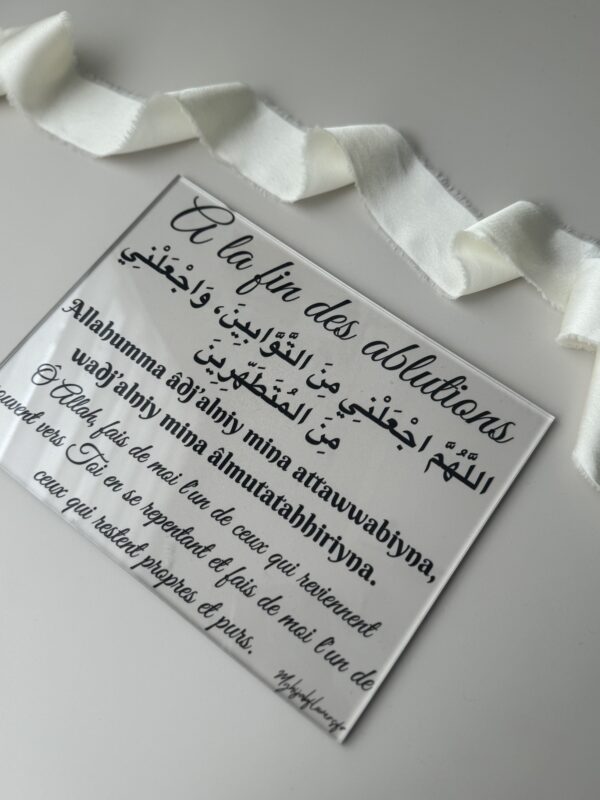 A la fin des ablutions
اللَّهُمَّ اجْعَلْنِي مِنَ التَّوَّابِينَ، وَاجْعَلْنِي
مِنَ المُتَطَهِّرِينَ
Allahumma âdj'alniy mina attawwabiyna,
wadj'alniy mina âlmutatahhiriyna.
Ô Allah, fais de moi l'un de ceux qui reviennent
souvent vers Toi en se repentant et fais de moi l'un de
ceux qui restent propres et purs.